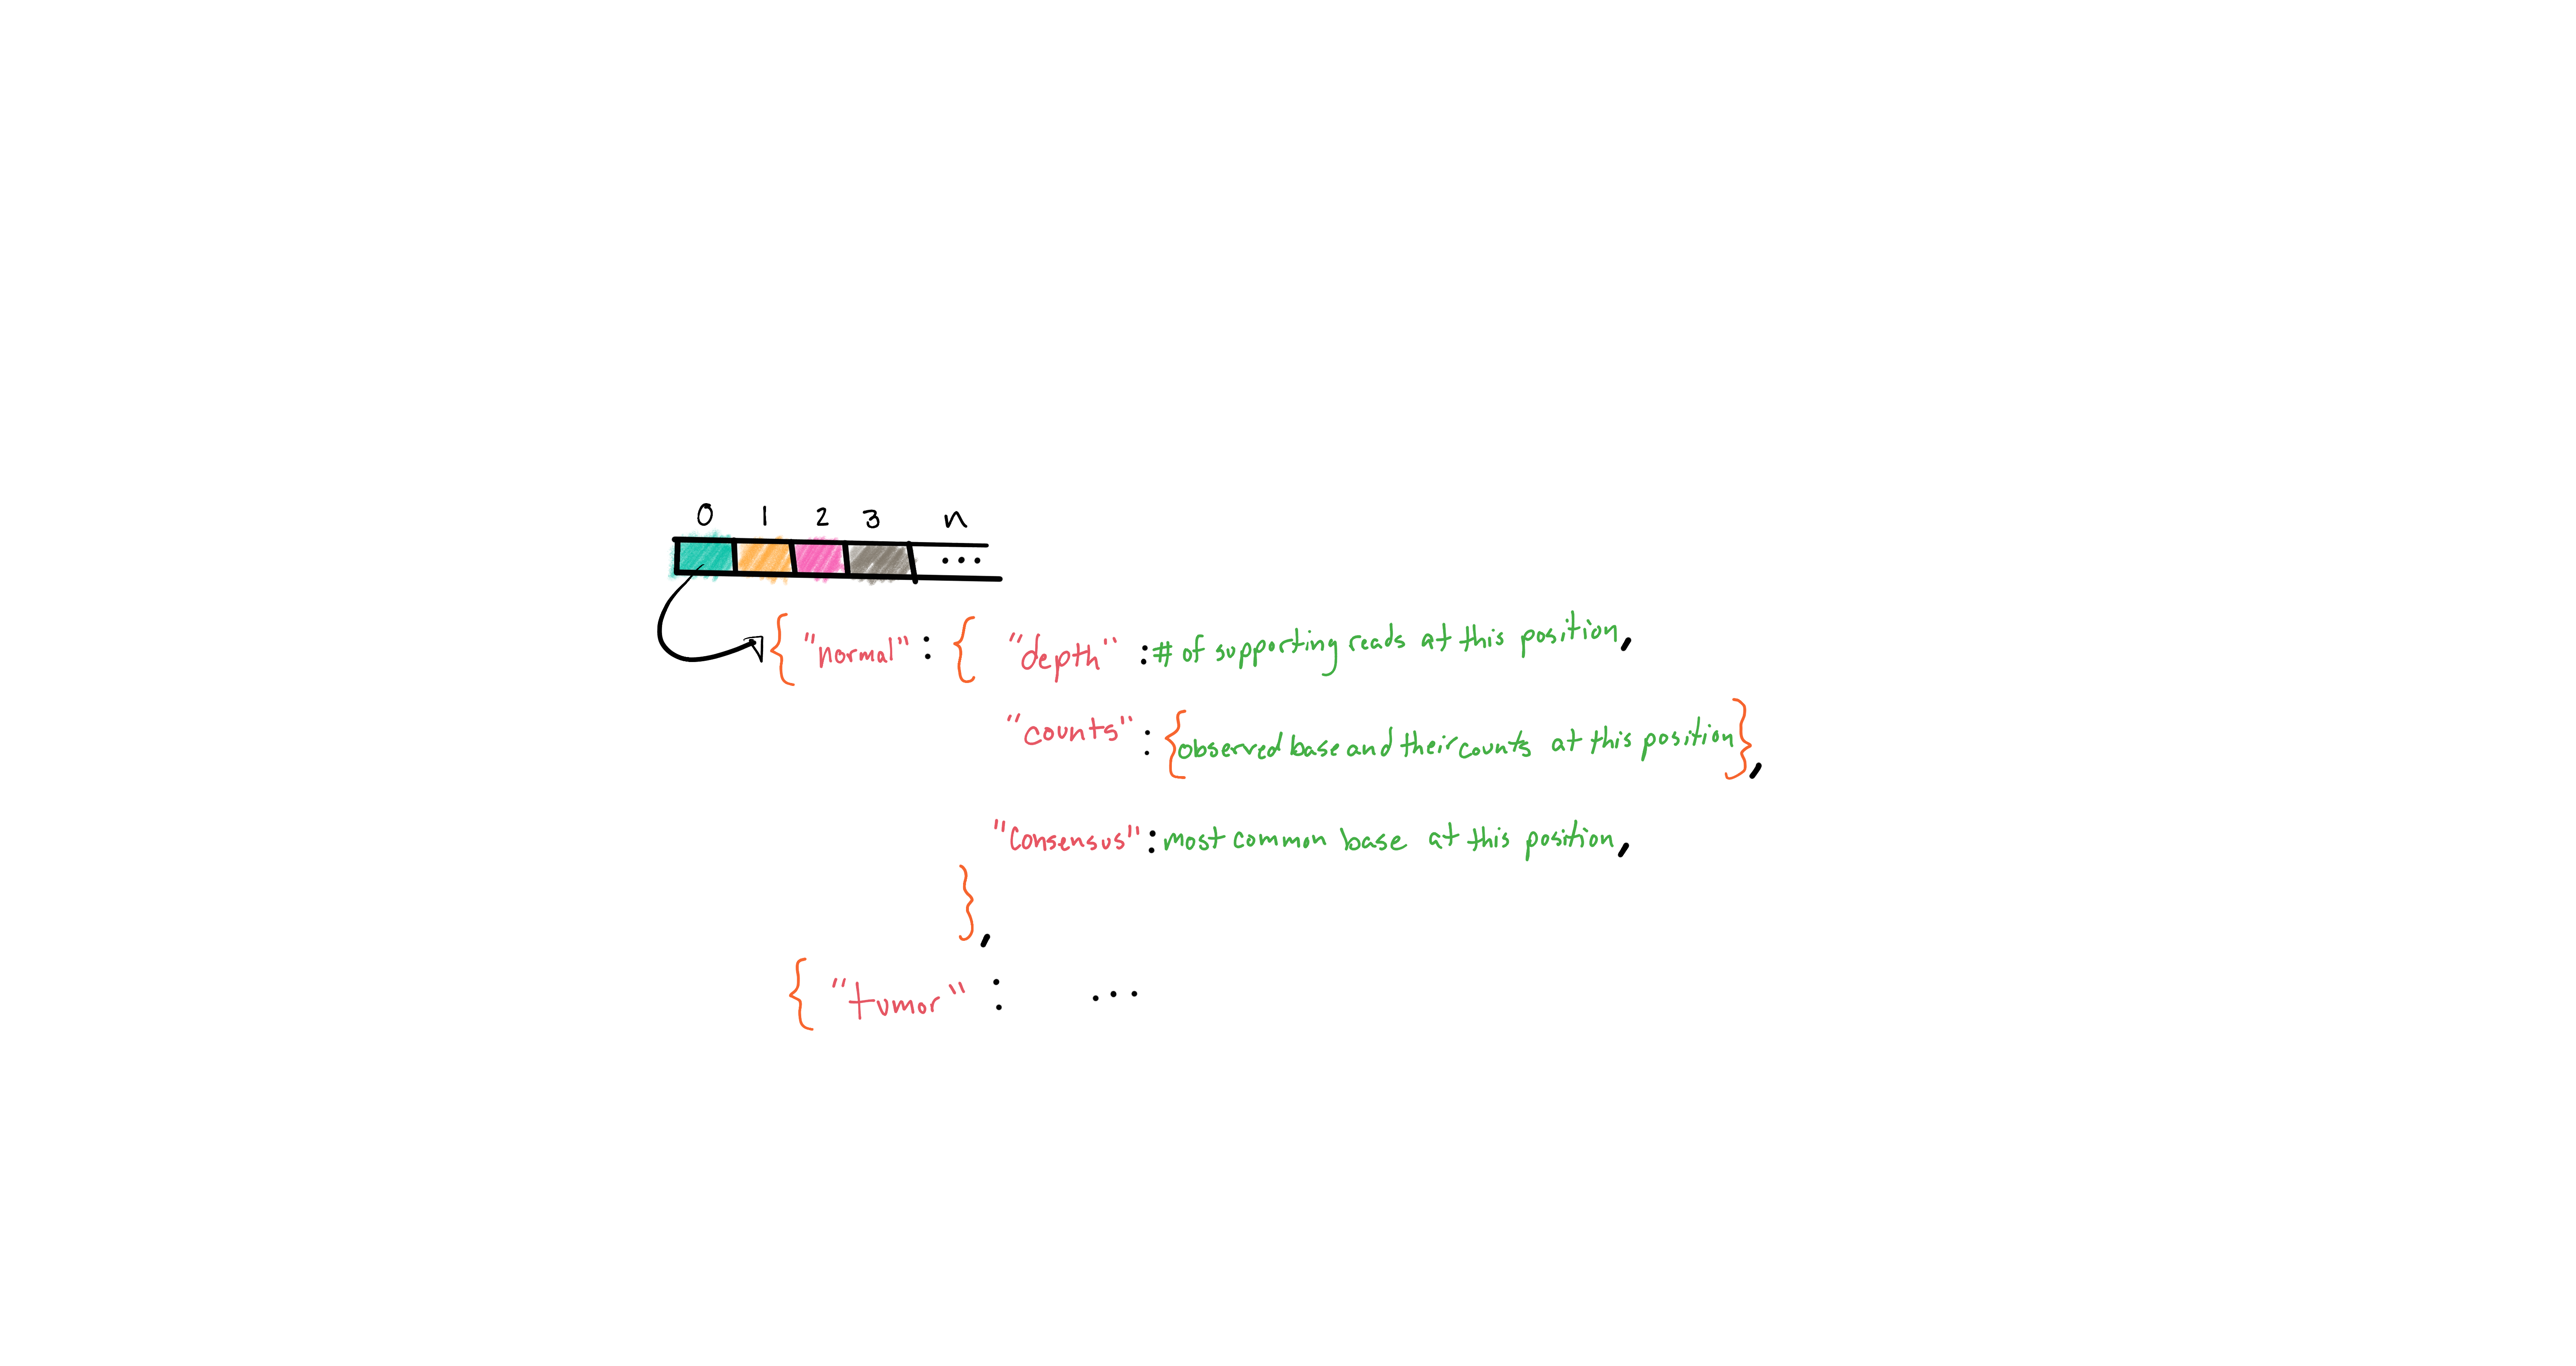 0 1 2 3 n
...
{ "normal" : { "depth" : # of supporting reads at this position,
"counts" : {observed base and their counts at this position},
"Consensus" : most common base at this position,
},
{ "tumor" : ...